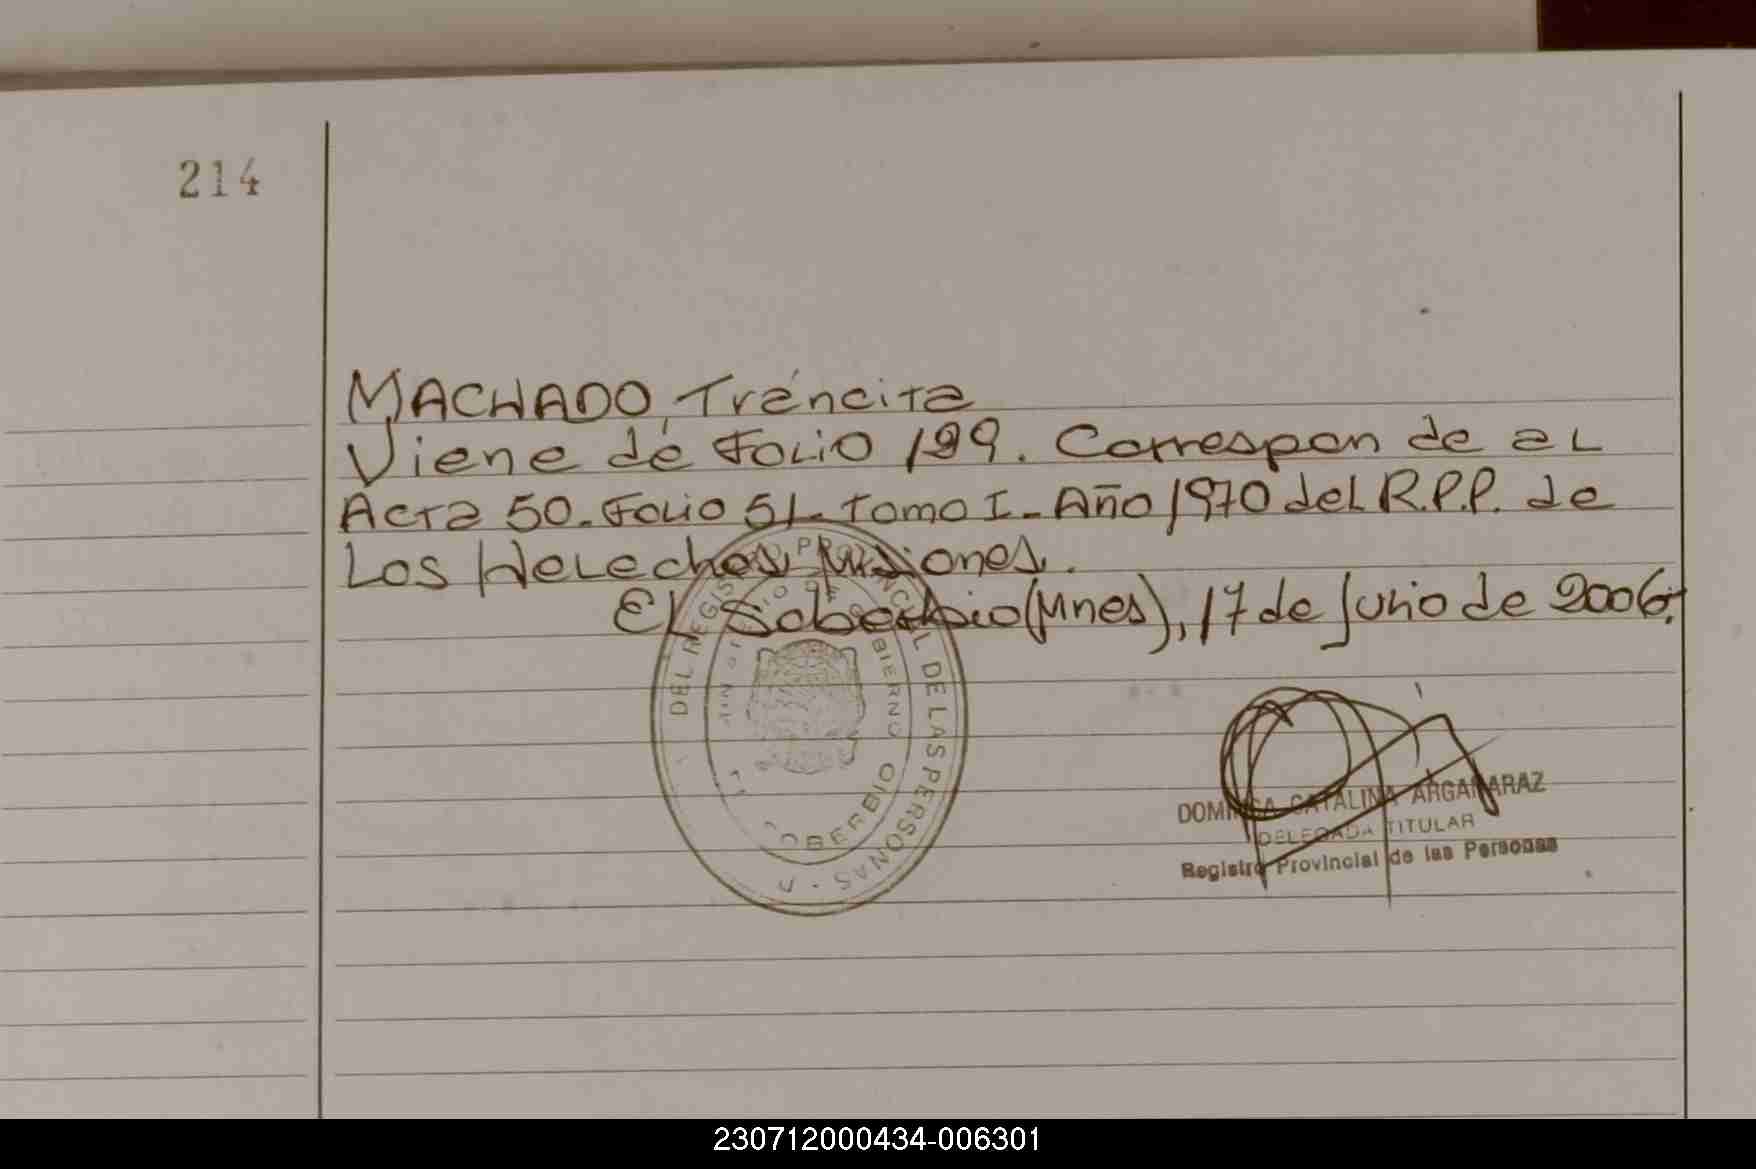 214
MACHADO, Tráncita
Viene de Folio 199. Corresponde al
Acta 50. Folio 51. Tomo I. Año 1970 del R.P.P. de
Los Helechos, Misiones.
El Soberbio (Mnes), 17 de Junio de 2006.
DEL REGISTRO PROVINCIAL DE LAS PERSONAS
MINISTERIO DE GOBIERNO
SOBERBIO
DOMINGA CATALINA ARGAÑARAZ
DELEGADA TITULAR
Registro Provincial de las Personas
230712000434-006301